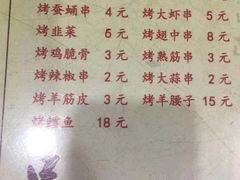 烤蚕蛹串 2元 烤大虾串 5元
烤韭菜 6元 烤翅中串 8元
烤鸡脆骨 3元 烤熟筋串 2元
烤辣椒串 2元 烤大蒜串 2元
烤羊筋皮 3元 烤羊腰子 15元
烤鳕鱼 18元